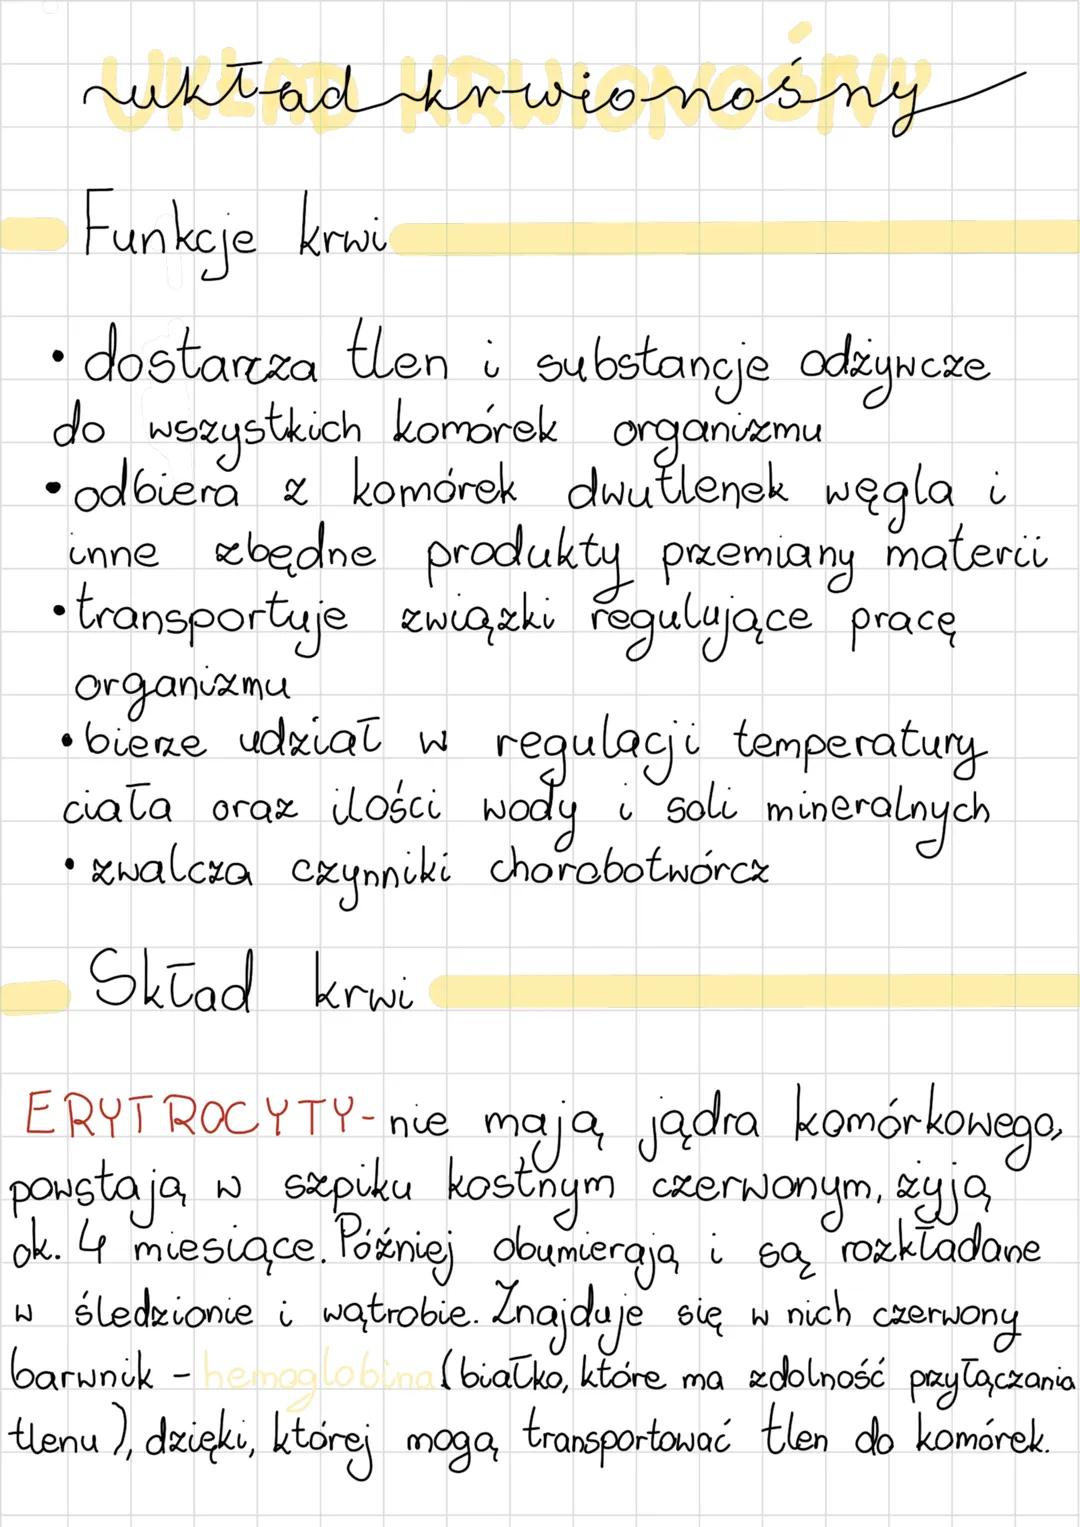 układ krwionośny
Funkcje krwi
• dostarcza tlen i substancje odżywcze
do wszystkich komórek organizmu
• odbiera z komórek dwutlenek węgla i
inne zbędne produkty przemiany materii
• transportuje związki regulujące pracę
organizmu
• bierze udział w regulacji temperatury
ciała oraz ilości wody i soli mineralnych
• zwalcza czynniki chorobotwórcz
Skład krwi
ERYTROCYTY- nie mają jądra komórkowego,
powstają w szpiku kostnym czerwonym, żyją
ok. 4 miesiące. Później obumierają i są rozkładane
w śledzionie i wątrobie. Znajduje się w nich czerwony
barwnik - hemoglobina (białko, które ma zdolność przyłączania
tlenu), dzięki, której mogą transportować tlen do komórek.